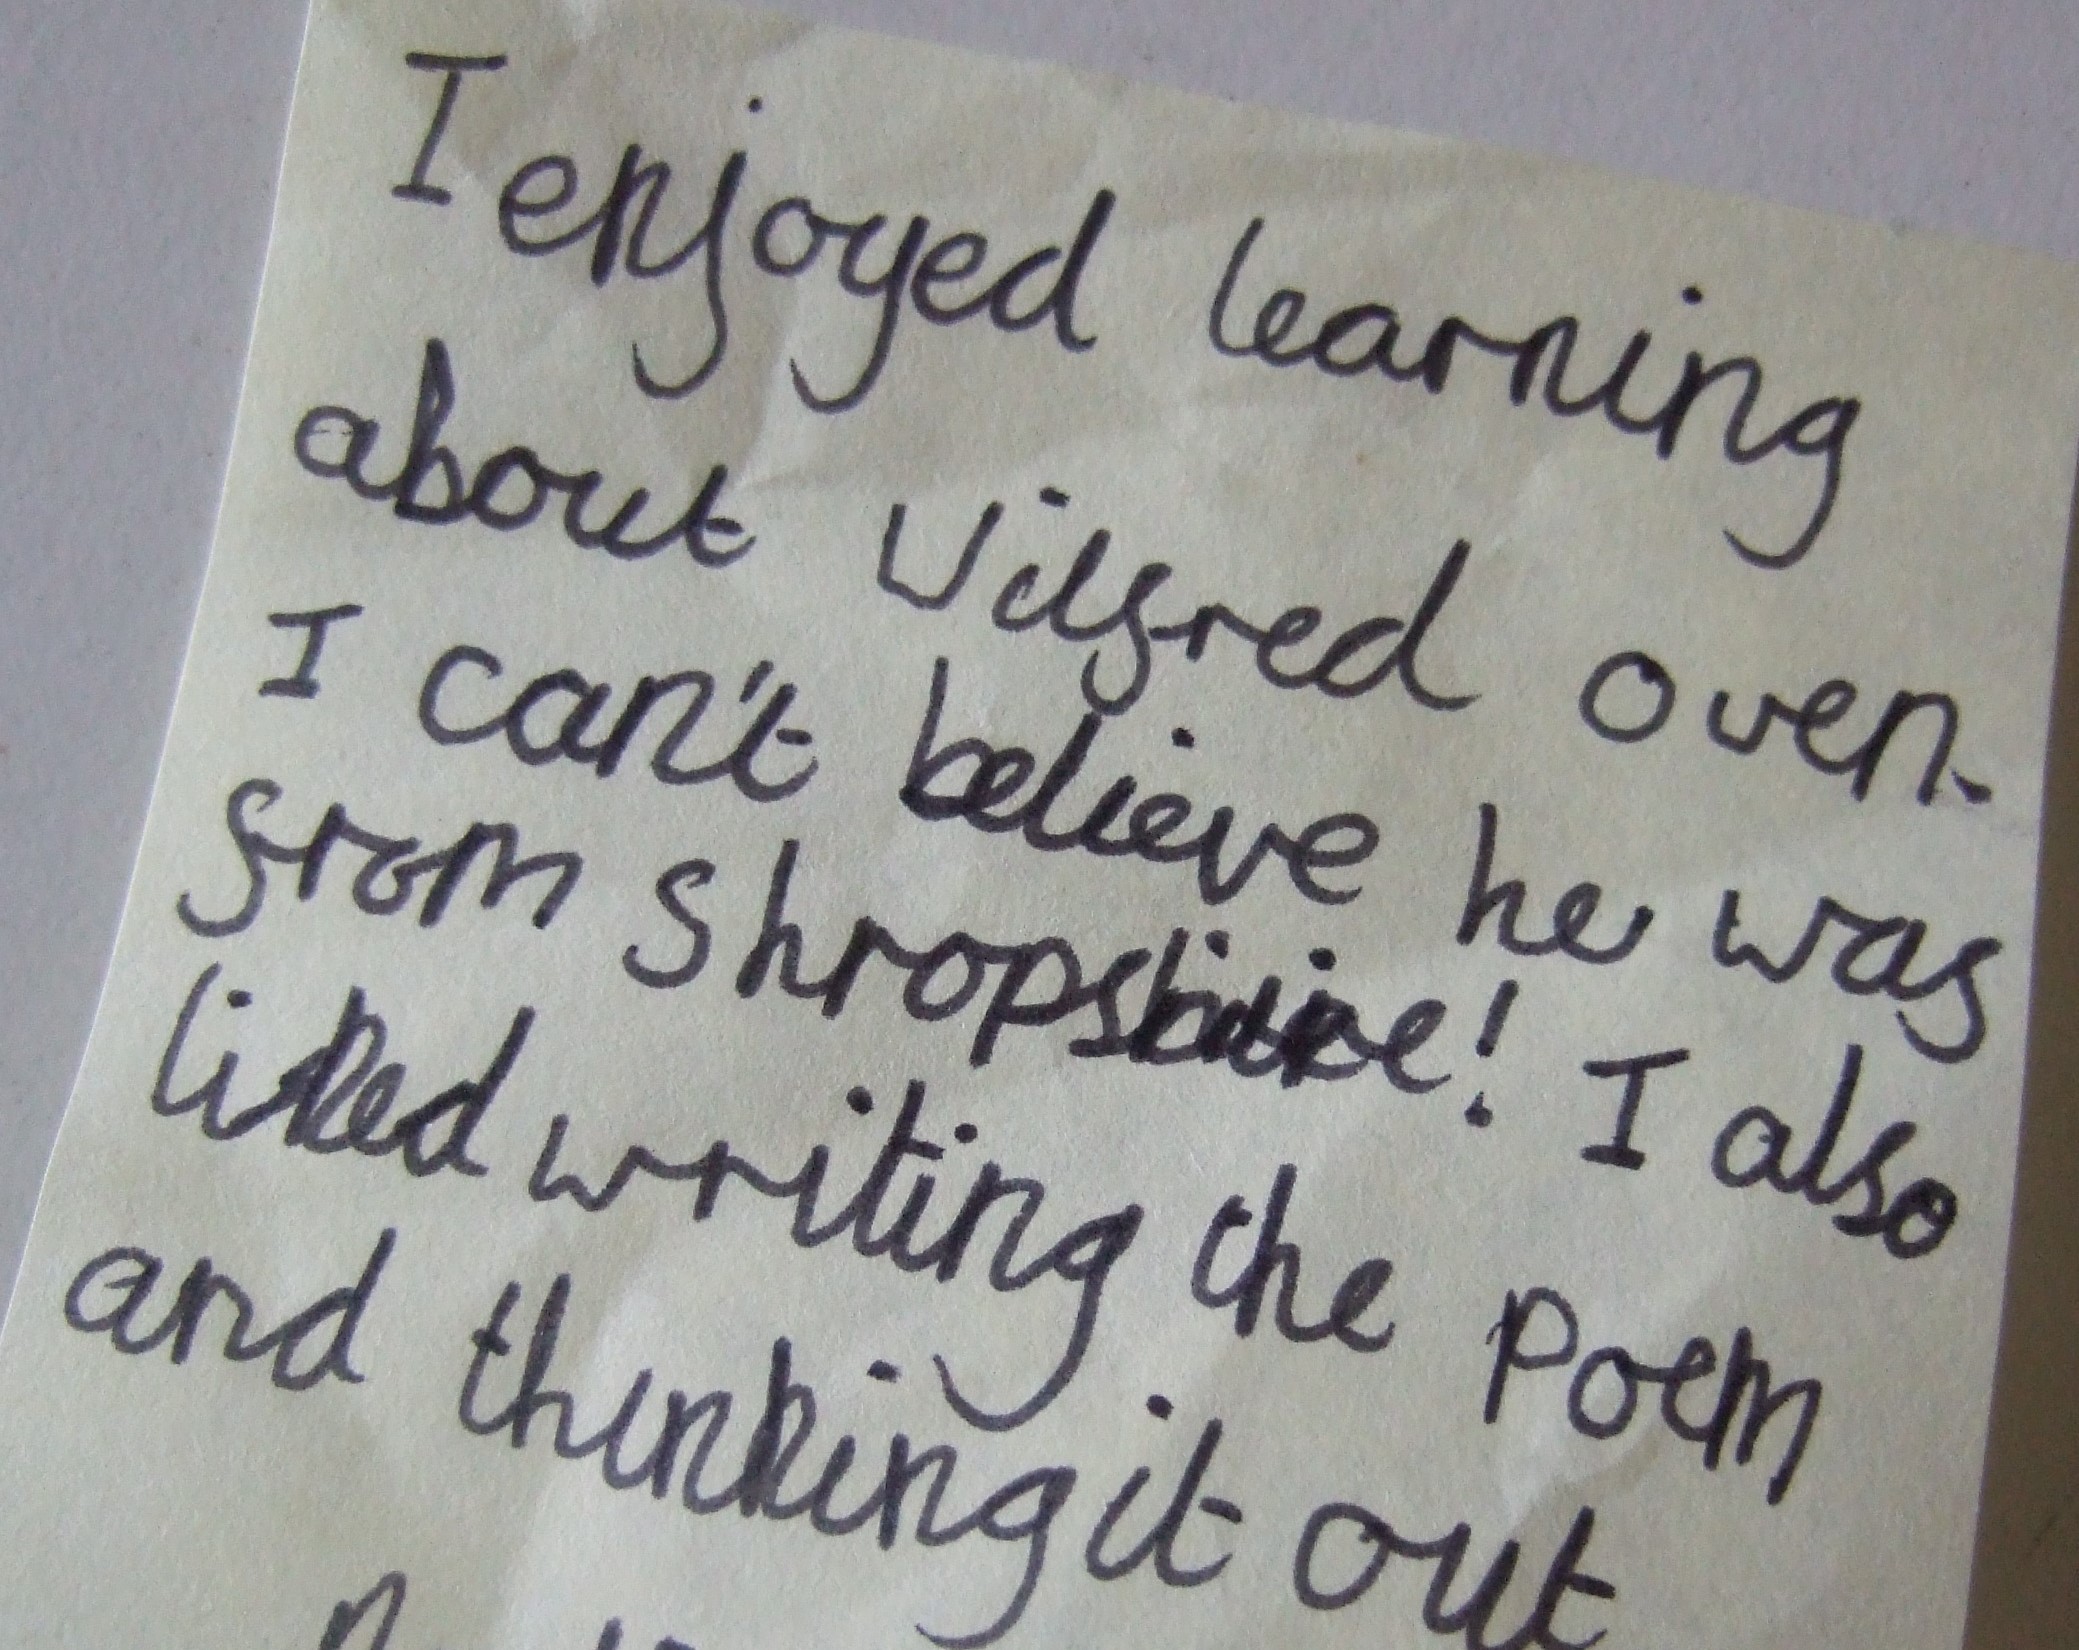 I enjoyed learning
about Wilfred oven.
I can't believe he was
from Shropshire! I also
liked writing the poem
and thinking it out